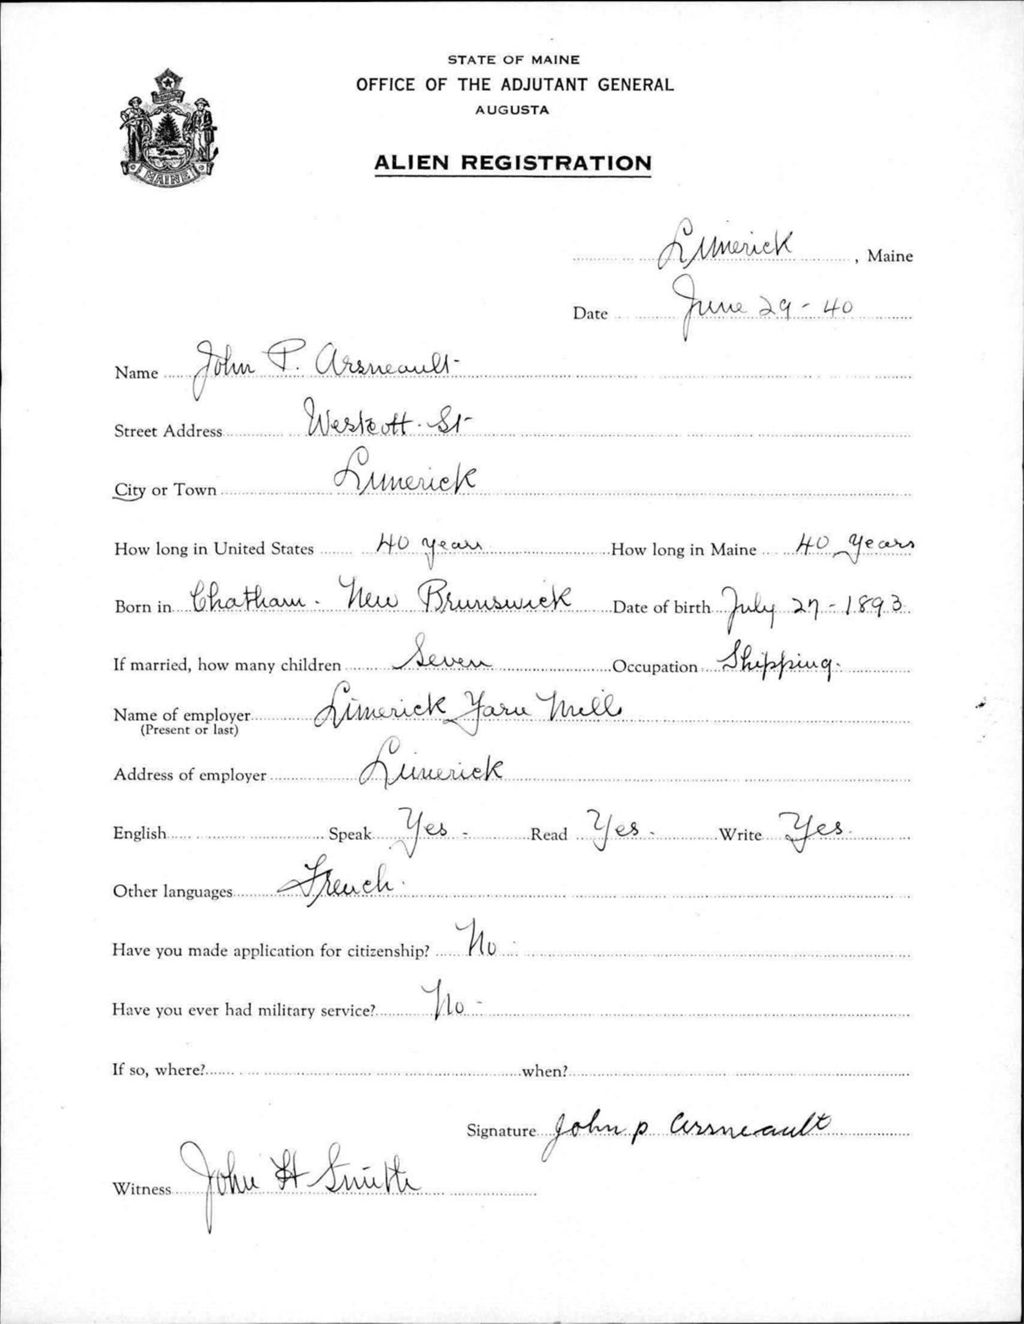 STATE OF MAINE
OFFICE OF THE ADJUTANT GENERAL
AUGUSTA
ALIEN REGISTRATION
MAINE
Limerick, Maine
Date June 29 - 40
Name John P. Arsneault
Street Address Westcott St
City or Town Limerick
How long in United States 40 years How long in Maine 40 years
Born in Chatham - New Brunswick Date of birth July 27 - 1893
If married, how many children Seven Occupation Shipping
Name of employer Limerick Yarn Mills
(Present or last)
Address of employer Limerick
English Speak Yes - Read Yes - Write Yes.
Other languages French.
Have you made application for citizenship? No
Have you ever had military service? No -
If so, where? when?
Signature John P Arsneault
Witness John H Smith